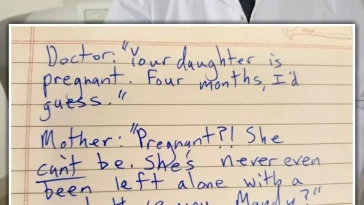 Doctor: "Your daughter is
pregnant. Four months, I'd
guess."
Mother: "Pregnant?! She
can't be. She's never even
been left alone with a